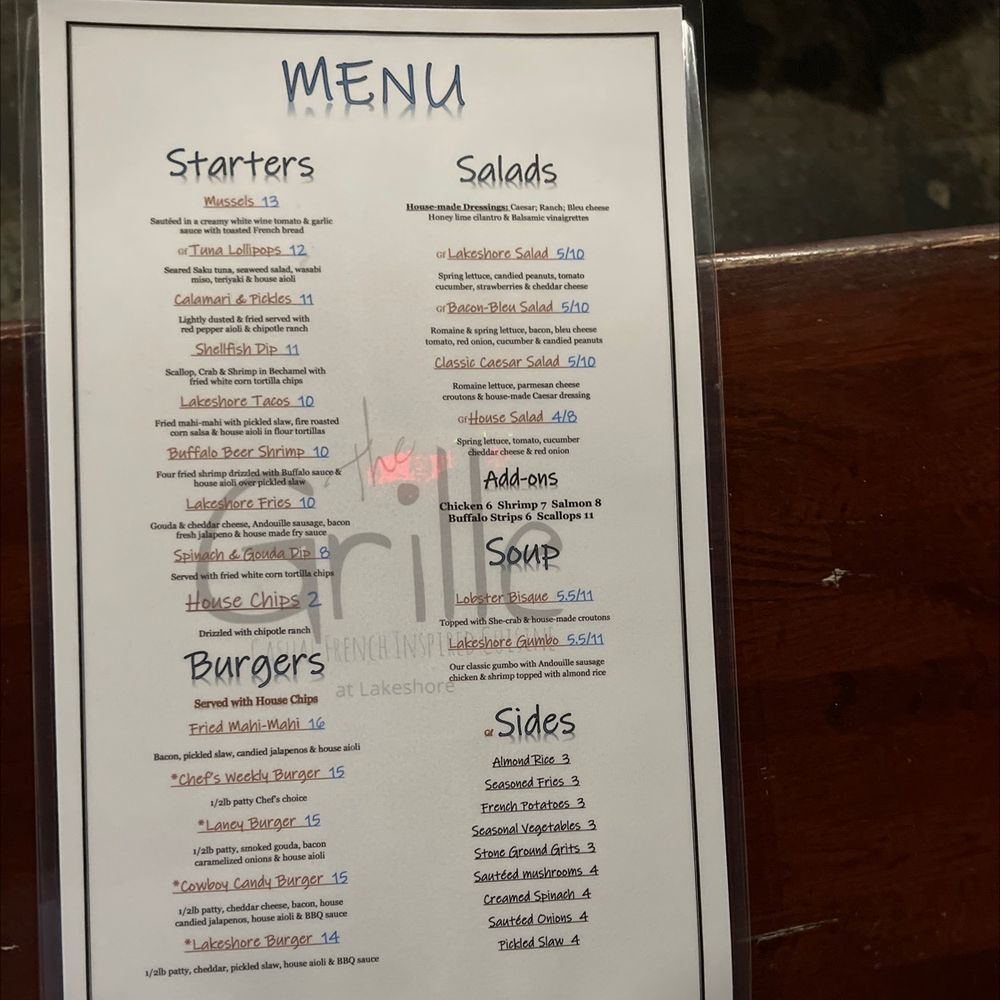 MENU
Starters
Mussels 13
Sautéed in a creamy white wine tomato & garlic
sauce with toasted French bread
GF Tuna Lollipops 12
Seared Saku tuna, seaweed salad, wasabi
miso, teriyaki & house aioli
Calamari & Pickles 11
Lightly dusted & fried served with
red pepper aioli & chipotle ranch
Shellfish Dip 11
Scallop, Crab & Shrimp in Bechamel with
fried white corn tortilla chips
Lakeshore Tacos 10
Fried mahi-mahi with pickled slaw, fire roasted
corn salsa & house aioli in flour tortillas
Buffalo Beer Shrimp 10
Four fried shrimp drizzled with Buffalo sauce &
house aioli over pickled slaw
Lakeshore Fries 10
Gouda & cheddar cheese, Andouille sausage, bacon
fresh jalapeno & house made fry sauce
Spinach & Gouda Dip 8
Served with fried white corn tortilla chips
House Chips 2
Drizzled with chipotle ranch
Burgers
Served with House Chips
Fried Mahi-Mahi 16
Bacon, pickled slaw, candied jalapenos & house aioli
*Chef's Weekly Burger 15
1/2lb patty Chef's choice
*Laney Burger 15
1/2lb patty, smoked gouda, bacon
caramelized onions & house aioli
*Cowboy Candy Burger 15
1/2lb patty, cheddar cheese, bacon, house
candied jalapenos, house aioli & BBQ sauce
*Lakeshore Burger 14
1/2lb patty, cheddar, pickled slaw, house aioli & BBQ sauce
Salads
House-made Dressings: Caesar; Ranch; Bleu cheese
Honey lime cilantro & Balsamic vinaigrettes
GF Lakeshore Salad 5/10
Spring lettuce, candied peanuts, tomato
cucumber, strawberries & cheddar cheese
GF Bacon-Bleu Salad 5/10
Romaine & spring lettuce, bacon, bleu cheese
tomato, red onion, cucumber & candied peanuts
Classic Caesar Salad 5/10
Romaine lettuce, parmesan cheese
croutons & house-made Caesar dressing
GF House Salad 4/8
Spring lettuce, tomato, cucumber
cheddar cheese & red onion
Add-ons
Chicken 6 Shrimp 7 Salmon 8
Buffalo Strips 6 Scallops 11
Soup
Lobster Bisque 5.5/11
Topped with She-crab & house-made croutons
Lakeshore Gumbo 5.5/11
Our classic gumbo with Andouille sausage
chicken & shrimp topped with almond rice
GF Sides
Almond Rice 3
Seasoned Fries 3
French Potatoes 3
Seasonal Vegetables 3
Stone Ground Grits 3
Sautéed mushrooms 4
Creamed Spinach 4
Sautéed Onions 4
Pickled Slaw 4
the
Grille
Casual French Inspired Cuisine
at Lakeshore